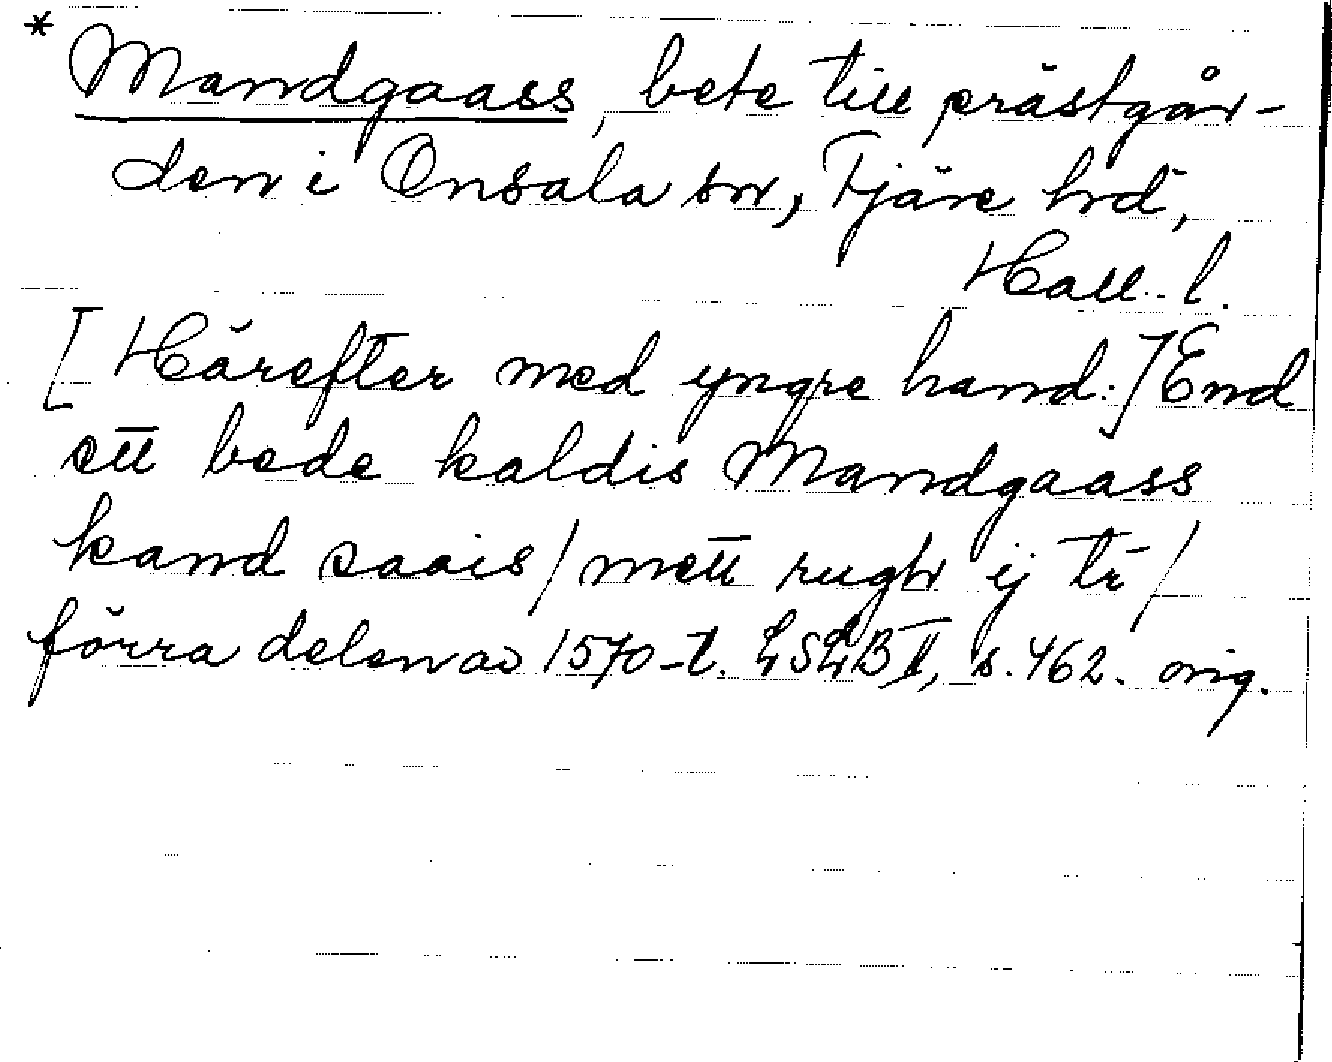 * Mandgaass, bete till prästgår-
den i Onsala sn, Fjäre hd,
Hall. l.
[Härefter med yngre hand:] End
ett bede kaldis Mandgaass
kand saais / mett rugh ij tr /
förra delen av 1570-t. LSLB II, s. 462. orig.